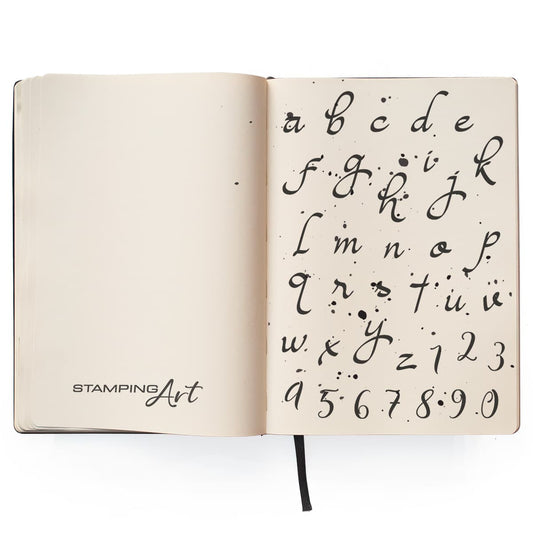 STAMPING Art
a b c d e
f g h i j k
l m n o p
q r s t u v
w x y z 1 2 3
9 5 6 7 8 9 0